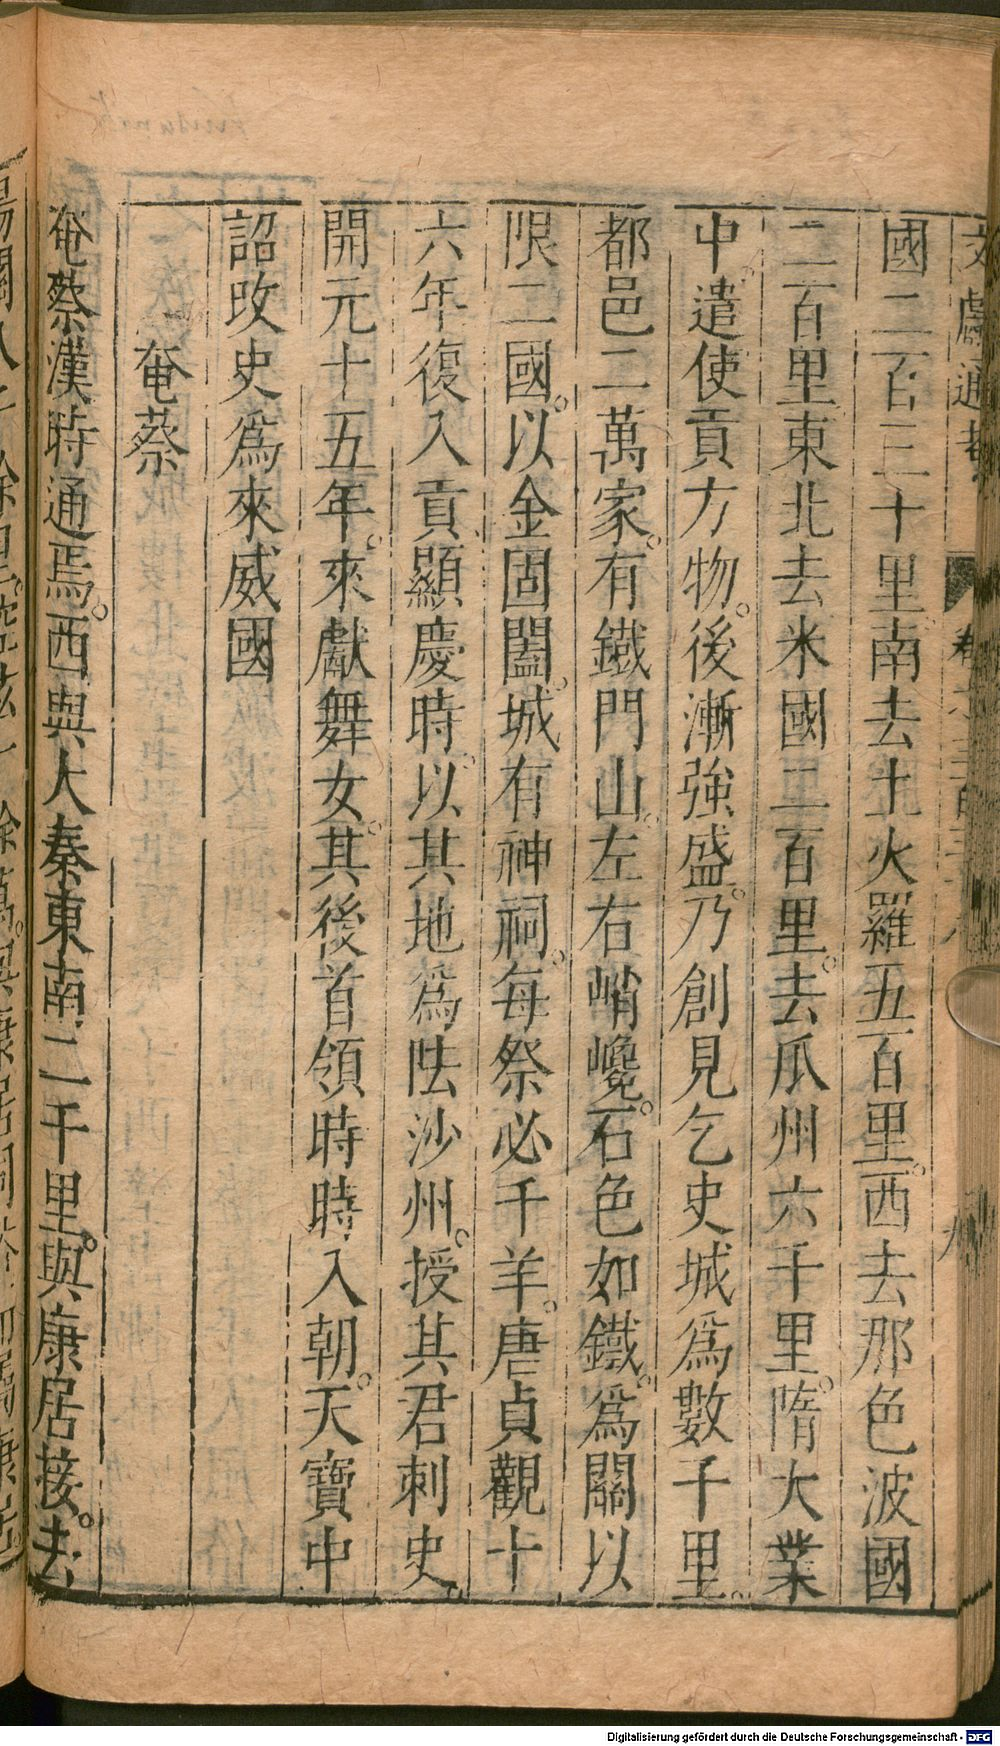 文獻通考
九
國二百三十里南去土火羅五百里。西去那色波國
二百里東北去米國二百里。去瓜州六千里。隋大業
中遣使貢方物。後漸強盛。乃創見乞史城爲數千里。
都邑二萬家。有鐵門山。左右峭巉。石色如鐵。爲關以
限二國。以金固闔。城有神祠。每祭必千羊。唐貞觀十
六年復入貢。顯慶時。以其地爲佉沙州。授其君刺史。
開元十五年。來獻舞女。其後首領時時入朝。天寶中
詔改史爲來威國
奄蔡
奄蔡漢時通焉。西與大秦東南二千里。與康居接。去
Digitalisierung gefördert durch die Deutsche Forschungsgemeinschaft - DFG